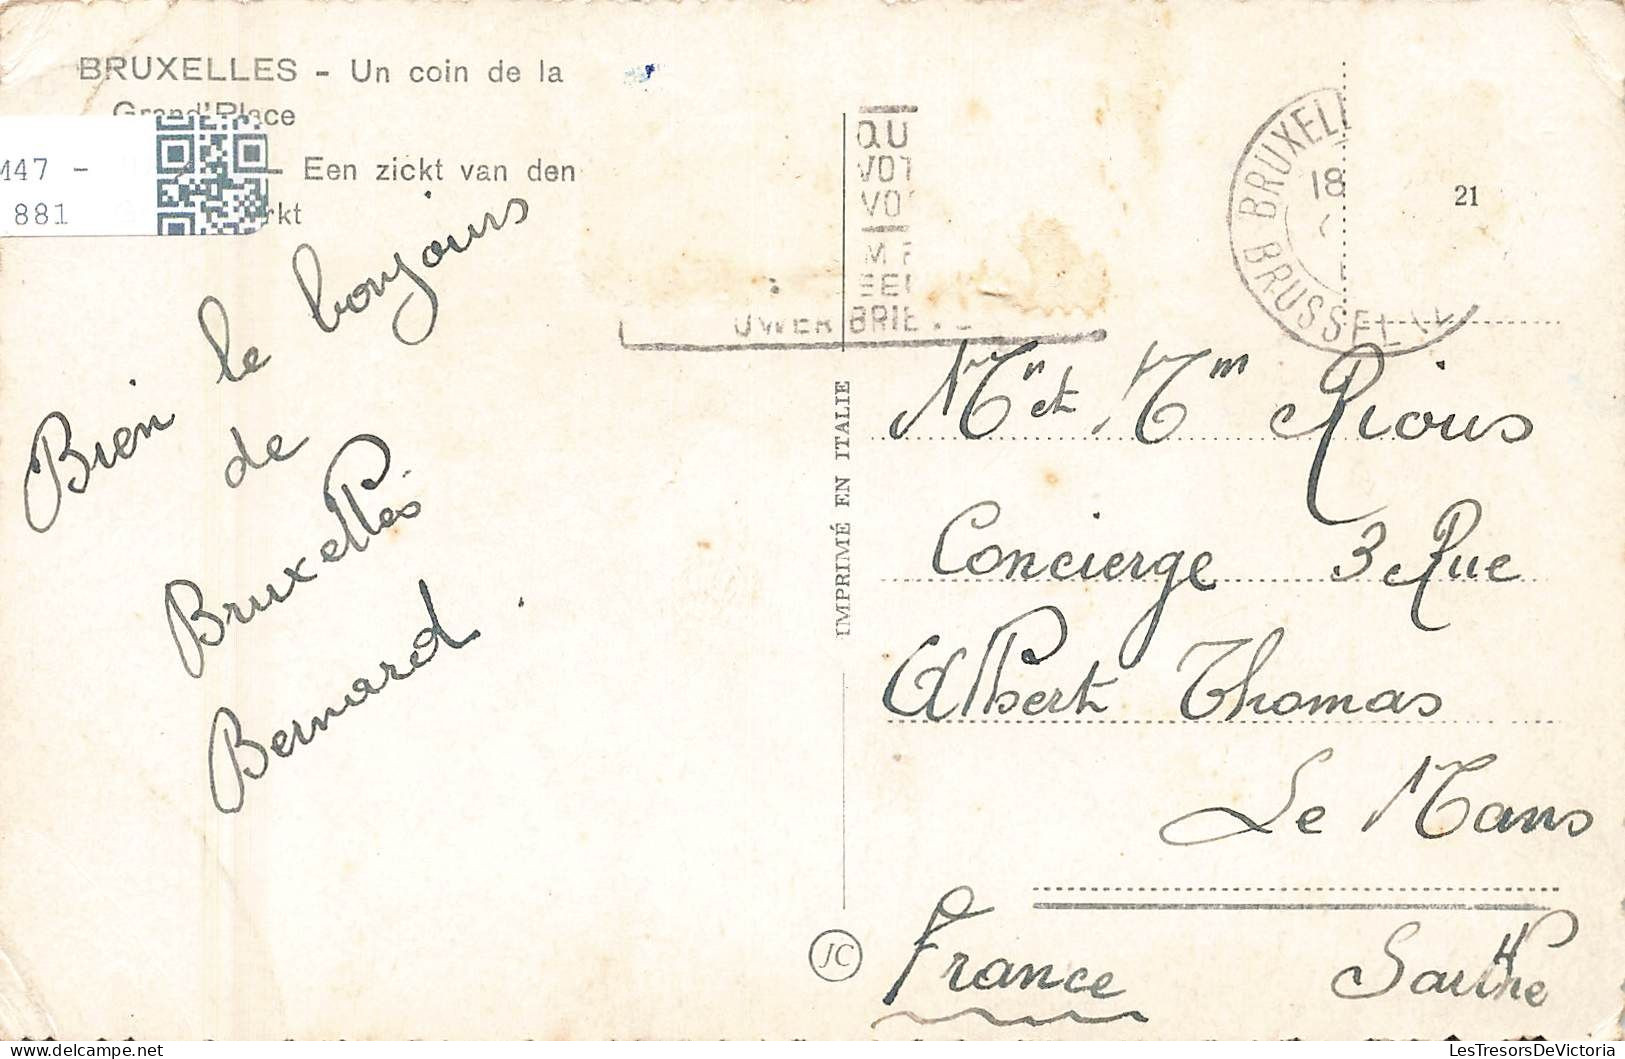 BRUXELLES - Un coin de la
Grand'Place
Een zickt van den
rkt
M47 -
881
Bien le bonjours
de
Bruxelles
Bernard.
QU
VOT
VO
UWER BRIE
BRUXELL
18
BRUSSEL
21
IMPRIMÉ EN ITALIE
Mr et Mm Rious
Concierge 3 Rue
Albert Thomas
Le Mans
France Sarthe
JC
LesTresorsDeVictoria